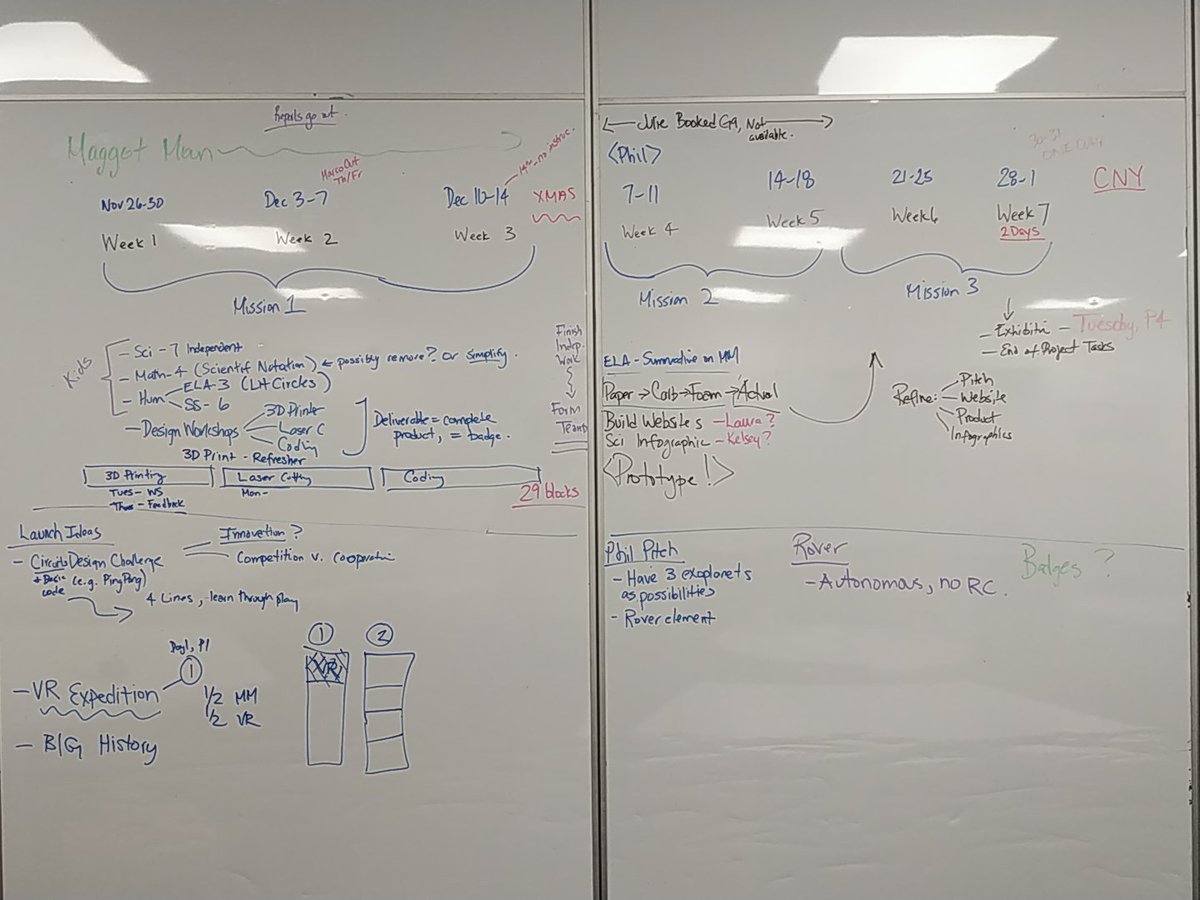 Reports go out.
Maggot Man
Marco Out
Th/Fr
14th - no instruc.
Nov 26-30
Dec 3-7
Dec 10-14
XMAS
Week 1
Week 2
Week 3
Mission 1
Kids
- Sci - 7 Independent
- Math - 4 (Scientific Notation) ← possibly remove? or simplify.
- Hum
ELA-3 (Lit Circles)
SS-6
- Design Workshops
3D Printer
Laser C
Coding
Deliverable = complete
product, = badge.
3D Print - Refresher
Finish
Indep.
Work
Form
Teams
3D Printing
Laser Cutting
Coding
Tues - WS
Mon -
Thurs - Feedback
29 blocks
Launch Ideas
Innovation ?
- Circuits Design Challenge
Competition v. cooperation
+ Basic (e.g. PingPong)
code
4 Lines, learn through play
Day 1, P1
1
1
2
VR
- VR Expedition
1/2 MM
1/2 VR
- BIG History
← Julie Booked G9, Not →
available.
<Phil>
30-31
ONE DAY
7-11
14-18
21-25
28-1
CNY
Week 4
Week 5
Week 6
Week 7
2 Days
Mission 2
Mission 3
- Exhibition - Tuesday, P4
- End of Project Tasks
ELA - Summative on MM
Paper → Carb → Foam → Actual
Build Websites - Laura?
Sci Infographic - Kelsey?
<Prototype!>
Refine:
Pitch
Website
Product
Infographics
Phil Pitch
- Have 3 exoplanets
as possibilities
- Rover element
Rover
- Autonomous, no RC.
Badges ?